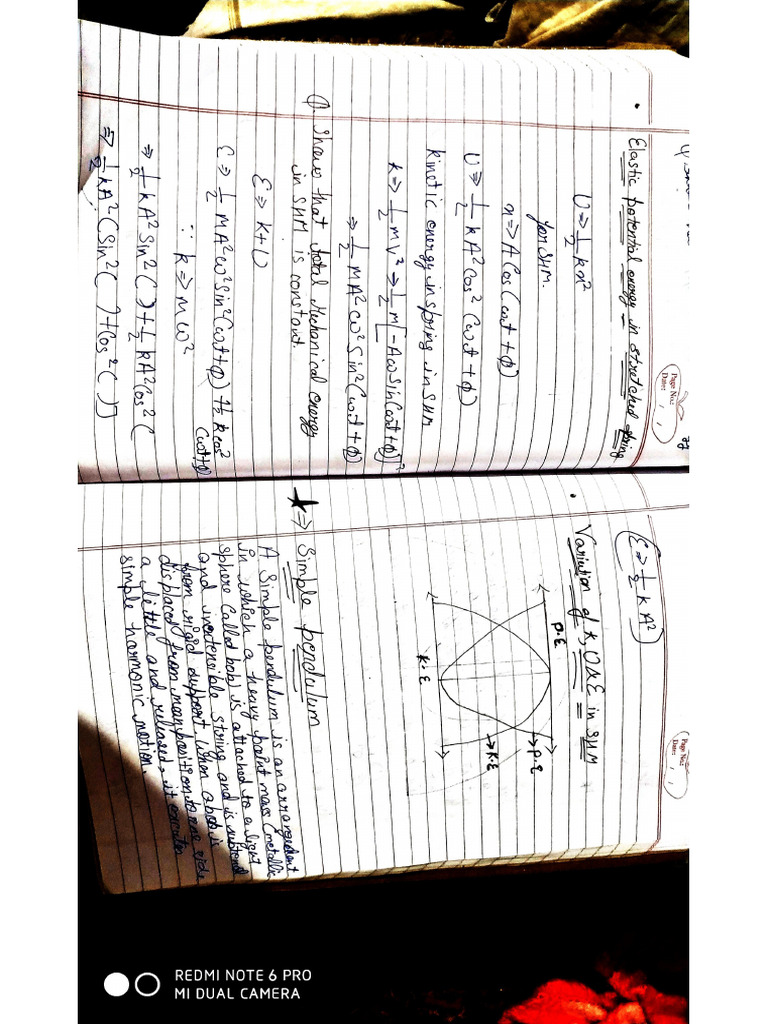 Page No.:
Date:
• Elastic potential energy in stretched spring
U ⇒ 1/2 kx²
for SHM.
x ⇒ A Cos (ωt + φ)
U ⇒ 1/2 kA² cos² (ωt + φ)
kinetic energy in spring in SHM
k ⇒ 1/2 mv² ⇒ 1/2 m[-Aω Sin(ωt + φ)]²
⇒ 1/2 mA²ω² Sin² (ωt + φ)
Q. Show that total Mechanical energy
in SHM is constant.
E ⇒ K + U
E ⇒ 1/2 mA²ω² Sin² (ωt + φ) + 1/2 k cos²
(ωt + φ)
∵ k ⇒ mω²
⇒ 1/2 kA² Sin² ( ) + 1/2 kA² Cos² (
⇒ 1/2 kA² (Sin² ( ) + Cos² ( )]
Page No.:
Date:
E ⇒ 1/2 kA²
• Variation of K, U & E in SHM
P.E
P.E
K.E
K.E
★ ⇒ Simple pendulum
A Simple pendulum is an arrangement
in which a heavy point mass (metallic
sphere called bob) is attached to a light
and inextensible string and is
from rigid support. When a bob is
displaced from mean position to one side
a little and released, it executes
simple harmonic motion.
REDMI NOTE 6 PRO
MI DUAL CAMERA